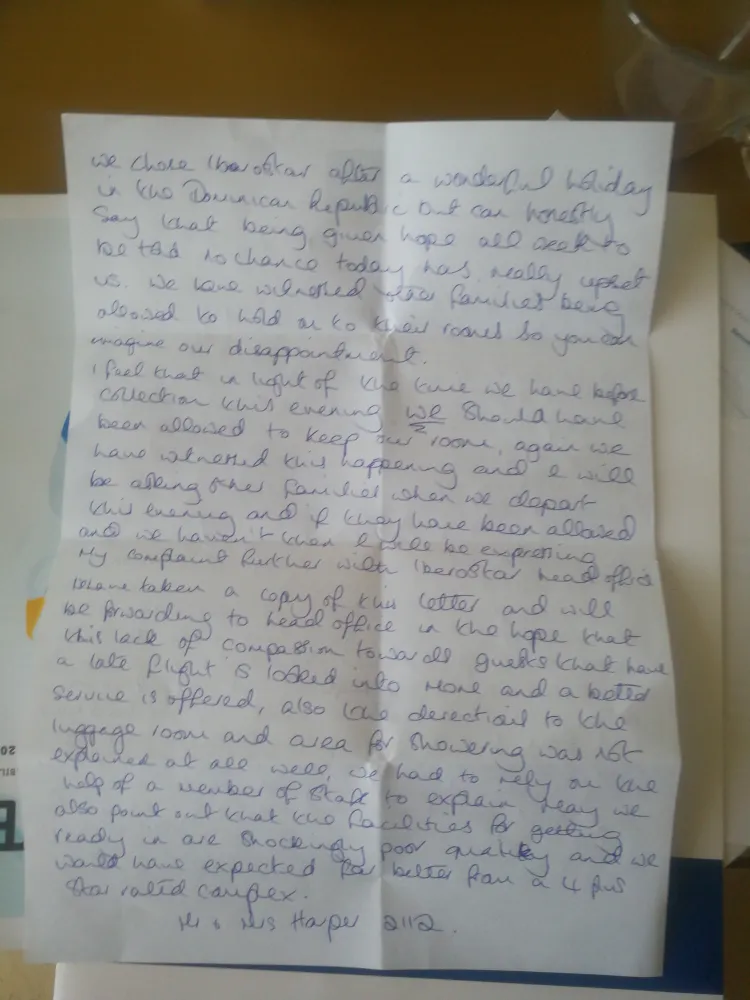 we chose Iberostar after a wonderful holiday
in the Dominican Republic but can honestly
say that being given hope all week to
be told no chance today has really upset
us. We have witnessed other families being
allowed to hold on to their rooms so you can
imagine our disappointment.
I feel that in light of the time we have before
collection this evening we should have
been allowed to keep our room, again we
have witnessed this happening and I will
be asking other families when we depart
this evening and if they have been allowed
and we haven't then I will be expressing
My complaint further with Iberostar head office
I have taken a copy of this letter and will
be forwarding to head office in the hope that
this lack of compassion towards guests that have
a late flight is looked into more and a better
service is offered, also the direction to the
luggage room and area for showering was not
explained at all well, we had to rely on the
help of a member of staff to explain may we
also point out that the facilities for getting
ready in are shockingly poor quality and we
would have expected far better from a 4 plus
star rated complex.
Mr & Mrs Harper 2112.
20
BIL
E